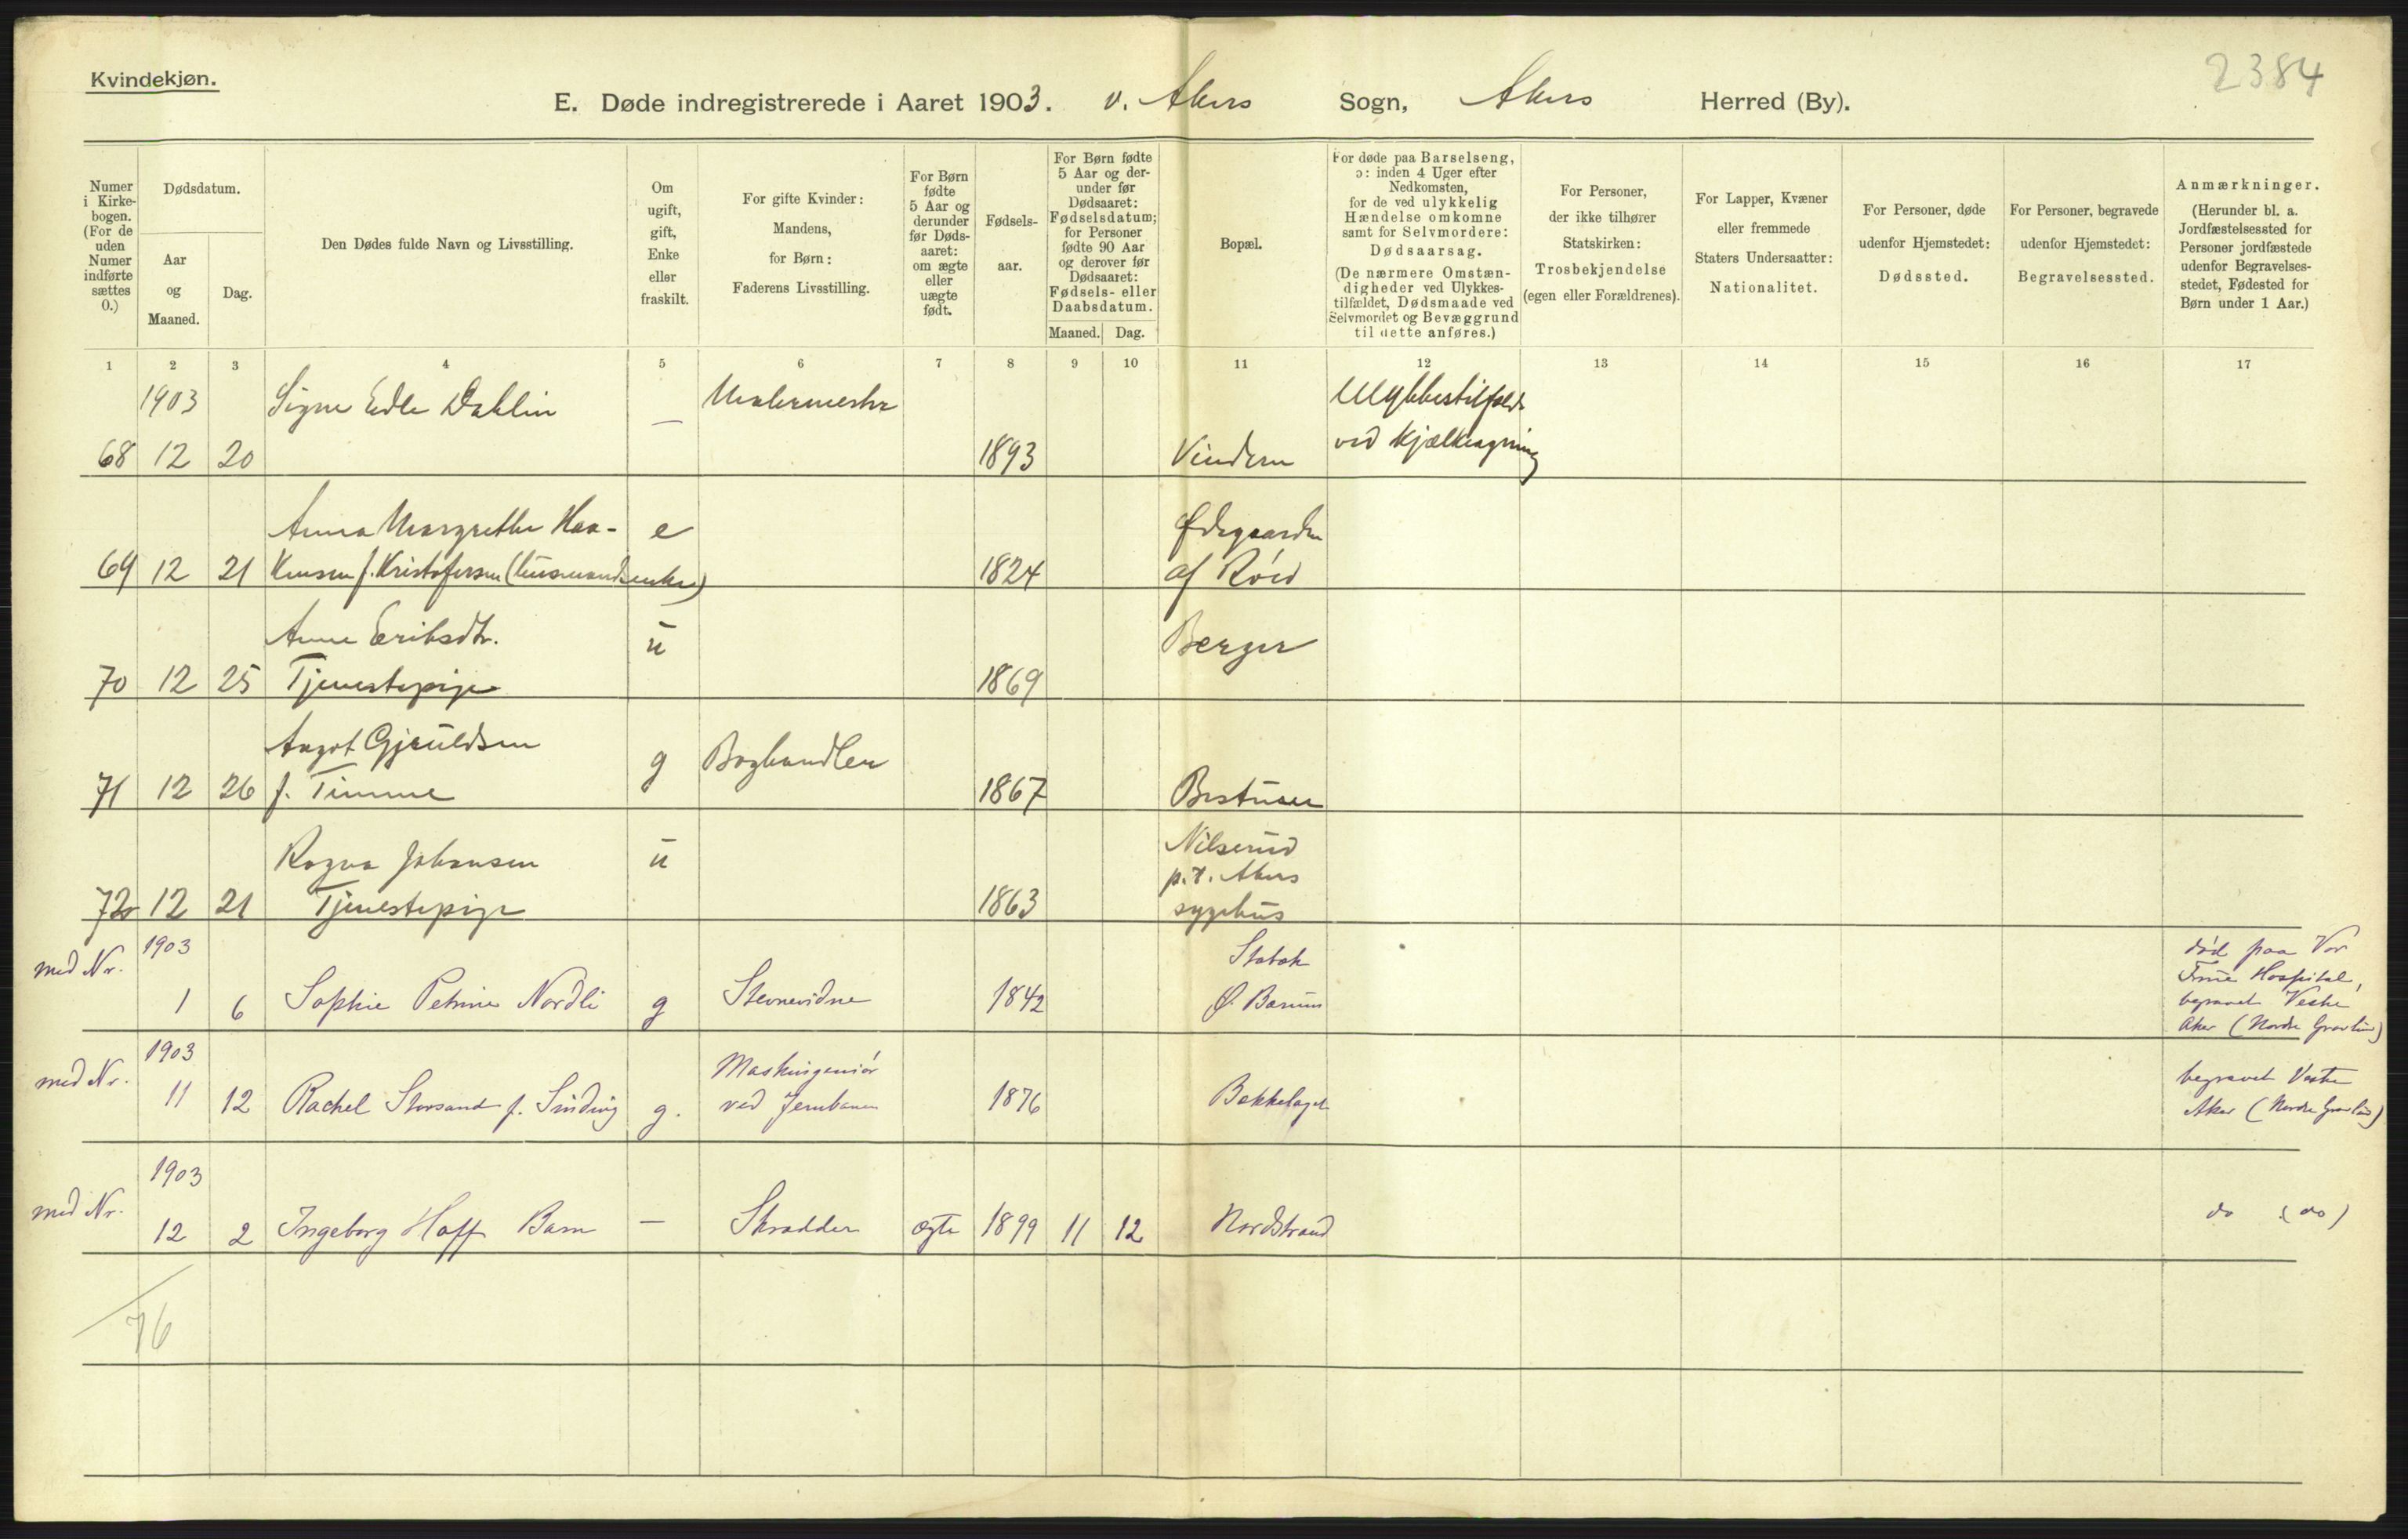 Kvindekjøn.
2384
E. Døde indregistrerede i Aaret 1903. v. Akers Sogn, Akers Herred (By).
Numer i Kirkebogen. (For de uden Numer indførte sættes 0.)
Dødsdatum.
Aar og Maaned.
Dag.
Den Dødes fulde Navn og Livsstilling.
Om ugift, gift, Enke eller fraskilt.
For gifte Kvinder: Mandens, for Børn: Faderens Livsstilling.
For Børn fødte 5 Aar og derunder før Dødsaaret: om ægte eller uægte født.
Fødselsaar.
For Børn fødte 5 Aar og derunder før Dødsaaret: Fødselsdatum; for Personer fødte 90 Aar og derover før Dødsaaret: Fødsels- eller Daabsdatum.
Maaned. Dag.
Bopæl.
For døde paa Barselseng, ɔ: inden 4 Uger efter Nedkomsten, for de ved ulykkelig Hændelse omkomne samt for Selvmordere: Dødsaarsag. (De nærmere Omstændigheder ved Ulykkestilfældet, Dødsmaade ved Selvmordet og Bevæggrund til dette anføres.)
For Personer, der ikke tilhører Statskirken: Trosbekjendelse (egen eller Forældrenes).
For Lapper, Kvæner eller fremmede Staters Undersaatter: Nationalitet.
For Personer, døde udenfor Hjemstedet: Dødssted.
For Personer, begravede udenfor Hjemstedet: Begravelsessted.
Anmærkninger. (Herunder bl. a. Jordfæstelsessted for Personer jordfæstede udenfor Begravelsesstedet, Fødested for Børn under 1 Aar.)
1 2 3 4 5 6 7 8 9 10 11 12 13 14 15 16 17
1903 Signe Edle Dahlin — Malermester Ulykkestilfælde
68 12 20 1893 Vindern ved Kjælkeagning
Anna Margrethe Haa- e Ødegaarden
69 12 21 kensen f. Kristofersen (Husmandsenke) 1824 af Röid
Anne Eriksdtr. u Berger
70 12 25 Tjenestepige 1869
Aagot Gjeruldsen g Boghandler
71 12 26 f. Timme 1867 Bestuen
Ragna Johansen u Nilserud
p.t. Akers
72 12 21 Tjenestepige 1863 sygehus
med Nr. 1903 Stabæk død paa Vor
Frue Hospital,
1 6 Sophie Petrine Nordli g Stevnevidne 1842 Ø. Bærum begravet Vestre
Aker (Nordre Gravlund)
med Nr. 1903 Maskiningeniör begravet Vestre
11 12 Rachel Storsand f. Sinding g. ved Jernbanen 1876 Bækkelaget Aker (Nordre Gravlund)
med Nr. 1903
12 2 Ingeborg Hoff Barn — Skrædder ægte 1899 11 12 Nordstrand do (do)
76